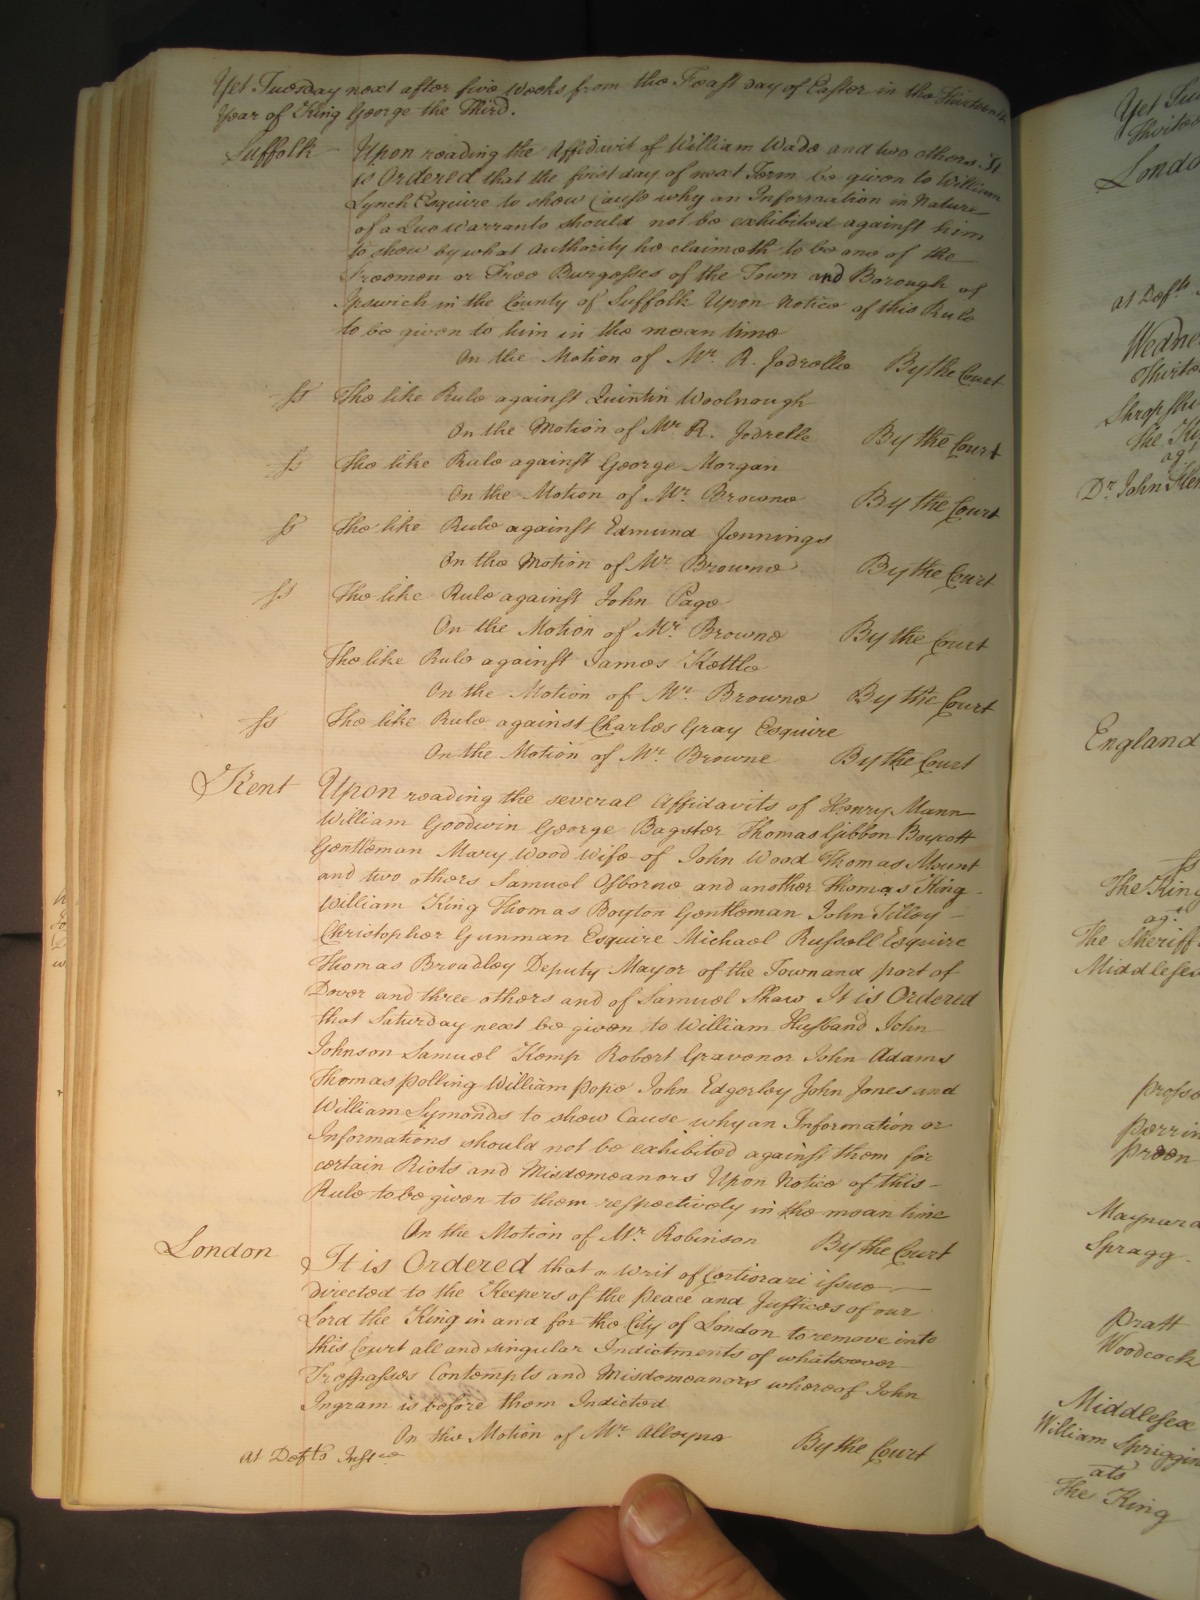 Yet Tuesday next after five Weeks from the Feast day of Easter in the Thirteenth
Year of King George the Third.
Suffolk Upon reading the Affidavit of William Wade and two others It
is Ordered that the first day of next Term be given to William
Lynch Esquire to show Cause why an Information in Nature
of a Quo Warranto should not be exhibited against him
to show by what Authority he claimeth to be one of the
Freemen or Free Burgesses of the Town and Borough of
Ipswich in the County of Suffolk Upon Notice of this Rule
to be given to him in the mean time
On the Motion of Mr. R. Jodrelle By the Court
ss The like Rule against Quintin Woolnough
On the Motion of Mr. R. Jodrelle By the Court
ss The like Rule against George Morgan
On the Motion of Mr. Browne By the Court
ss The like Rule against Edmund Jennings
On the Motion of Mr. Browne By the Court
ss The like Rule against John Page
On the Motion of Mr. Browne By the Court
The like Rule against James Kettle
On the Motion of Mr. Browne By the Court
ss The like Rule against Charles Gray Esquire
On the Motion of Mr. Browne By the Court
Kent Upon reading the several Affidavits of Henry Mann
William Goodwin George Bagster Thomas Gibbon Boycott
Gentleman Mary Wood Wife of John Wood Thomas Mount
and two others Samuel Osborne and another Thomas King
William King Thomas Boyton Gentleman John Tilley
Christopher Gunman Esquire Michael Russell Esquire
Thomas Broadley Deputy Mayor of the Town and port of
Dover and three others and of Samuel Shaw It is Ordered
that Saturday next be given to William Husband John
Johnson Samuel Kemp Robert Gravenor John Adams
Thomas Polling William Pope John Edgerley John Jones and
William Symonds to show Cause why an Information or
Informations should not be exhibited against them for
certain Riots and Misdemeanors Upon Notice of this
Rule to be given to them respectively in the mean time
On the Motion of Mr. Robinson By the Court
London It is Ordered that a Writ of Certiorari issue
directed to the Keepers of the Peace and Justices of our
Lord the King in and for the City of London to remove into
this Court all and singular Indictments of whatsoever
Trespasses Contempts and Misdemeanors whereof John
Ingram is before them Indicted
On the Motion of Mr. Alleyne By the Court
At Defts Instce
Yet
London
at Defts
Shropshire
The
agt
Dr. John
England
ss
The King
agt
The Sheriff
Middlesex
Maynard
Spragg
Pratt
Woodcock
Middlesex
William Spriggin
ats
The King